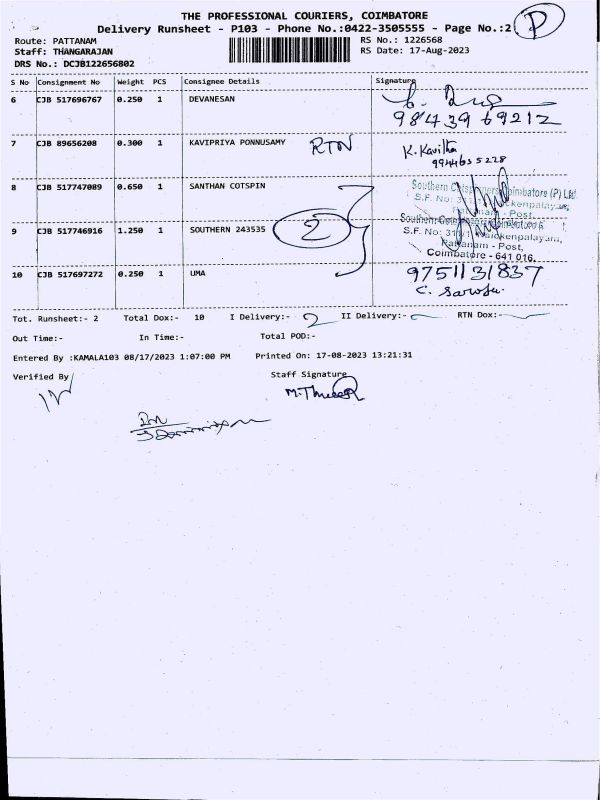 THE PROFESSIONAL COURIERS, COIMBATORE
Delivery Runsheet - P103 - Phone No.:0422-3505555 - Page No.:2 P
Route: PATTANAM
RS No.: 1226568
Staff: THANGARAJAN
RS Date: 17-Aug-2023
DRS No.: DCJB122656802
S No Consignment No Weight PCS Consignee Details Signature
6 CJB 517696767 0.250 1 DEVANESAN
98439 69212
7 CJB 89656208 0.300 1 KAVIPRIYA PONNUSAMY RTN K. Kavitha
9944635228
8 CJB 517747089 0.650 1 SANTHAN COTSPIN
Southern Cotspinners Coimbatore (P) Ltd.
9 CJB 517746916 1.250 1 SOUTHERN 243535 2
Pattanam - Post,
Coimbatore - 641 016.
10 CJB 517697272 0.250 1 UMA 9751131837
C. Saroja.
Tot. Runsheet:- 2 Total Dox:- 10 I Delivery:- 2 II Delivery:- RTN Dox:-
Out Time:- In Time:- Total POD:-
Entered By :KAMALA103 08/17/2023 1:07:00 PM Printed On: 17-08-2023 13:21:31
Verified By Staff Signature